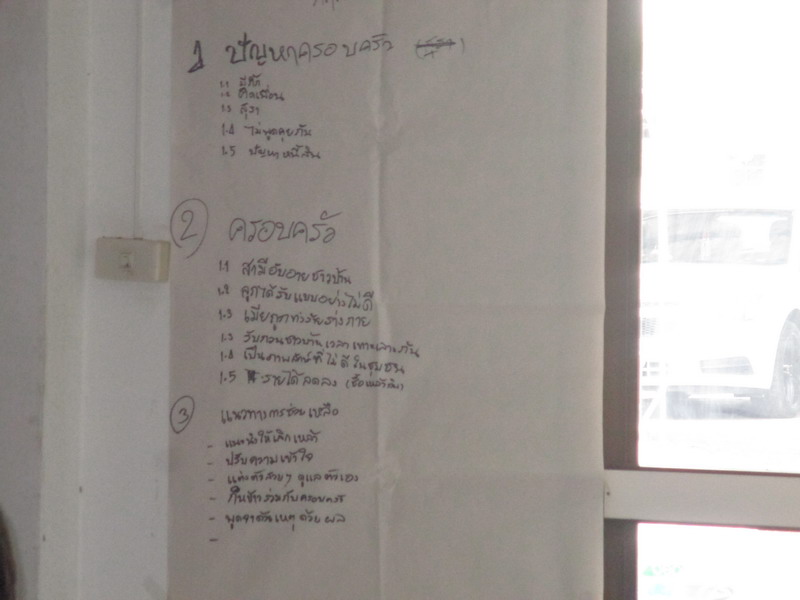 1 ปัญหาครอบครัว
1.1 มีกิ๊ก
1.2 ติดเพื่อน
1.3 สุรา
1.4 ไม่พูดคุยกัน
1.5 ปัญหาหนี้สิน
2 ครอบครัว
1.1 สามีอับอายชาวบ้าน
1.2 ลูกได้รับแบบอย่างไม่ดี
1.3 เมียถูกทำร้ายร่างกาย
1.3 รบกวนชาวบ้านเวลาทะเลาะกัน
1.4 เป็นภาพลักษณ์ที่ไม่ดีในชุมชน
1.5 รายได้ลดลง (ซื้อเหล้ากิน)
3 แนวทางการช่วยเหลือ
- แนะนำให้เลิกเหล้า
- ปรับความเข้าใจ
- แต่งตัวสวยๆ ดูแลตัวเอง
- กินข้าวร่วมกับครอบครัว
- พูดจากันเหตุด้วยผล
-